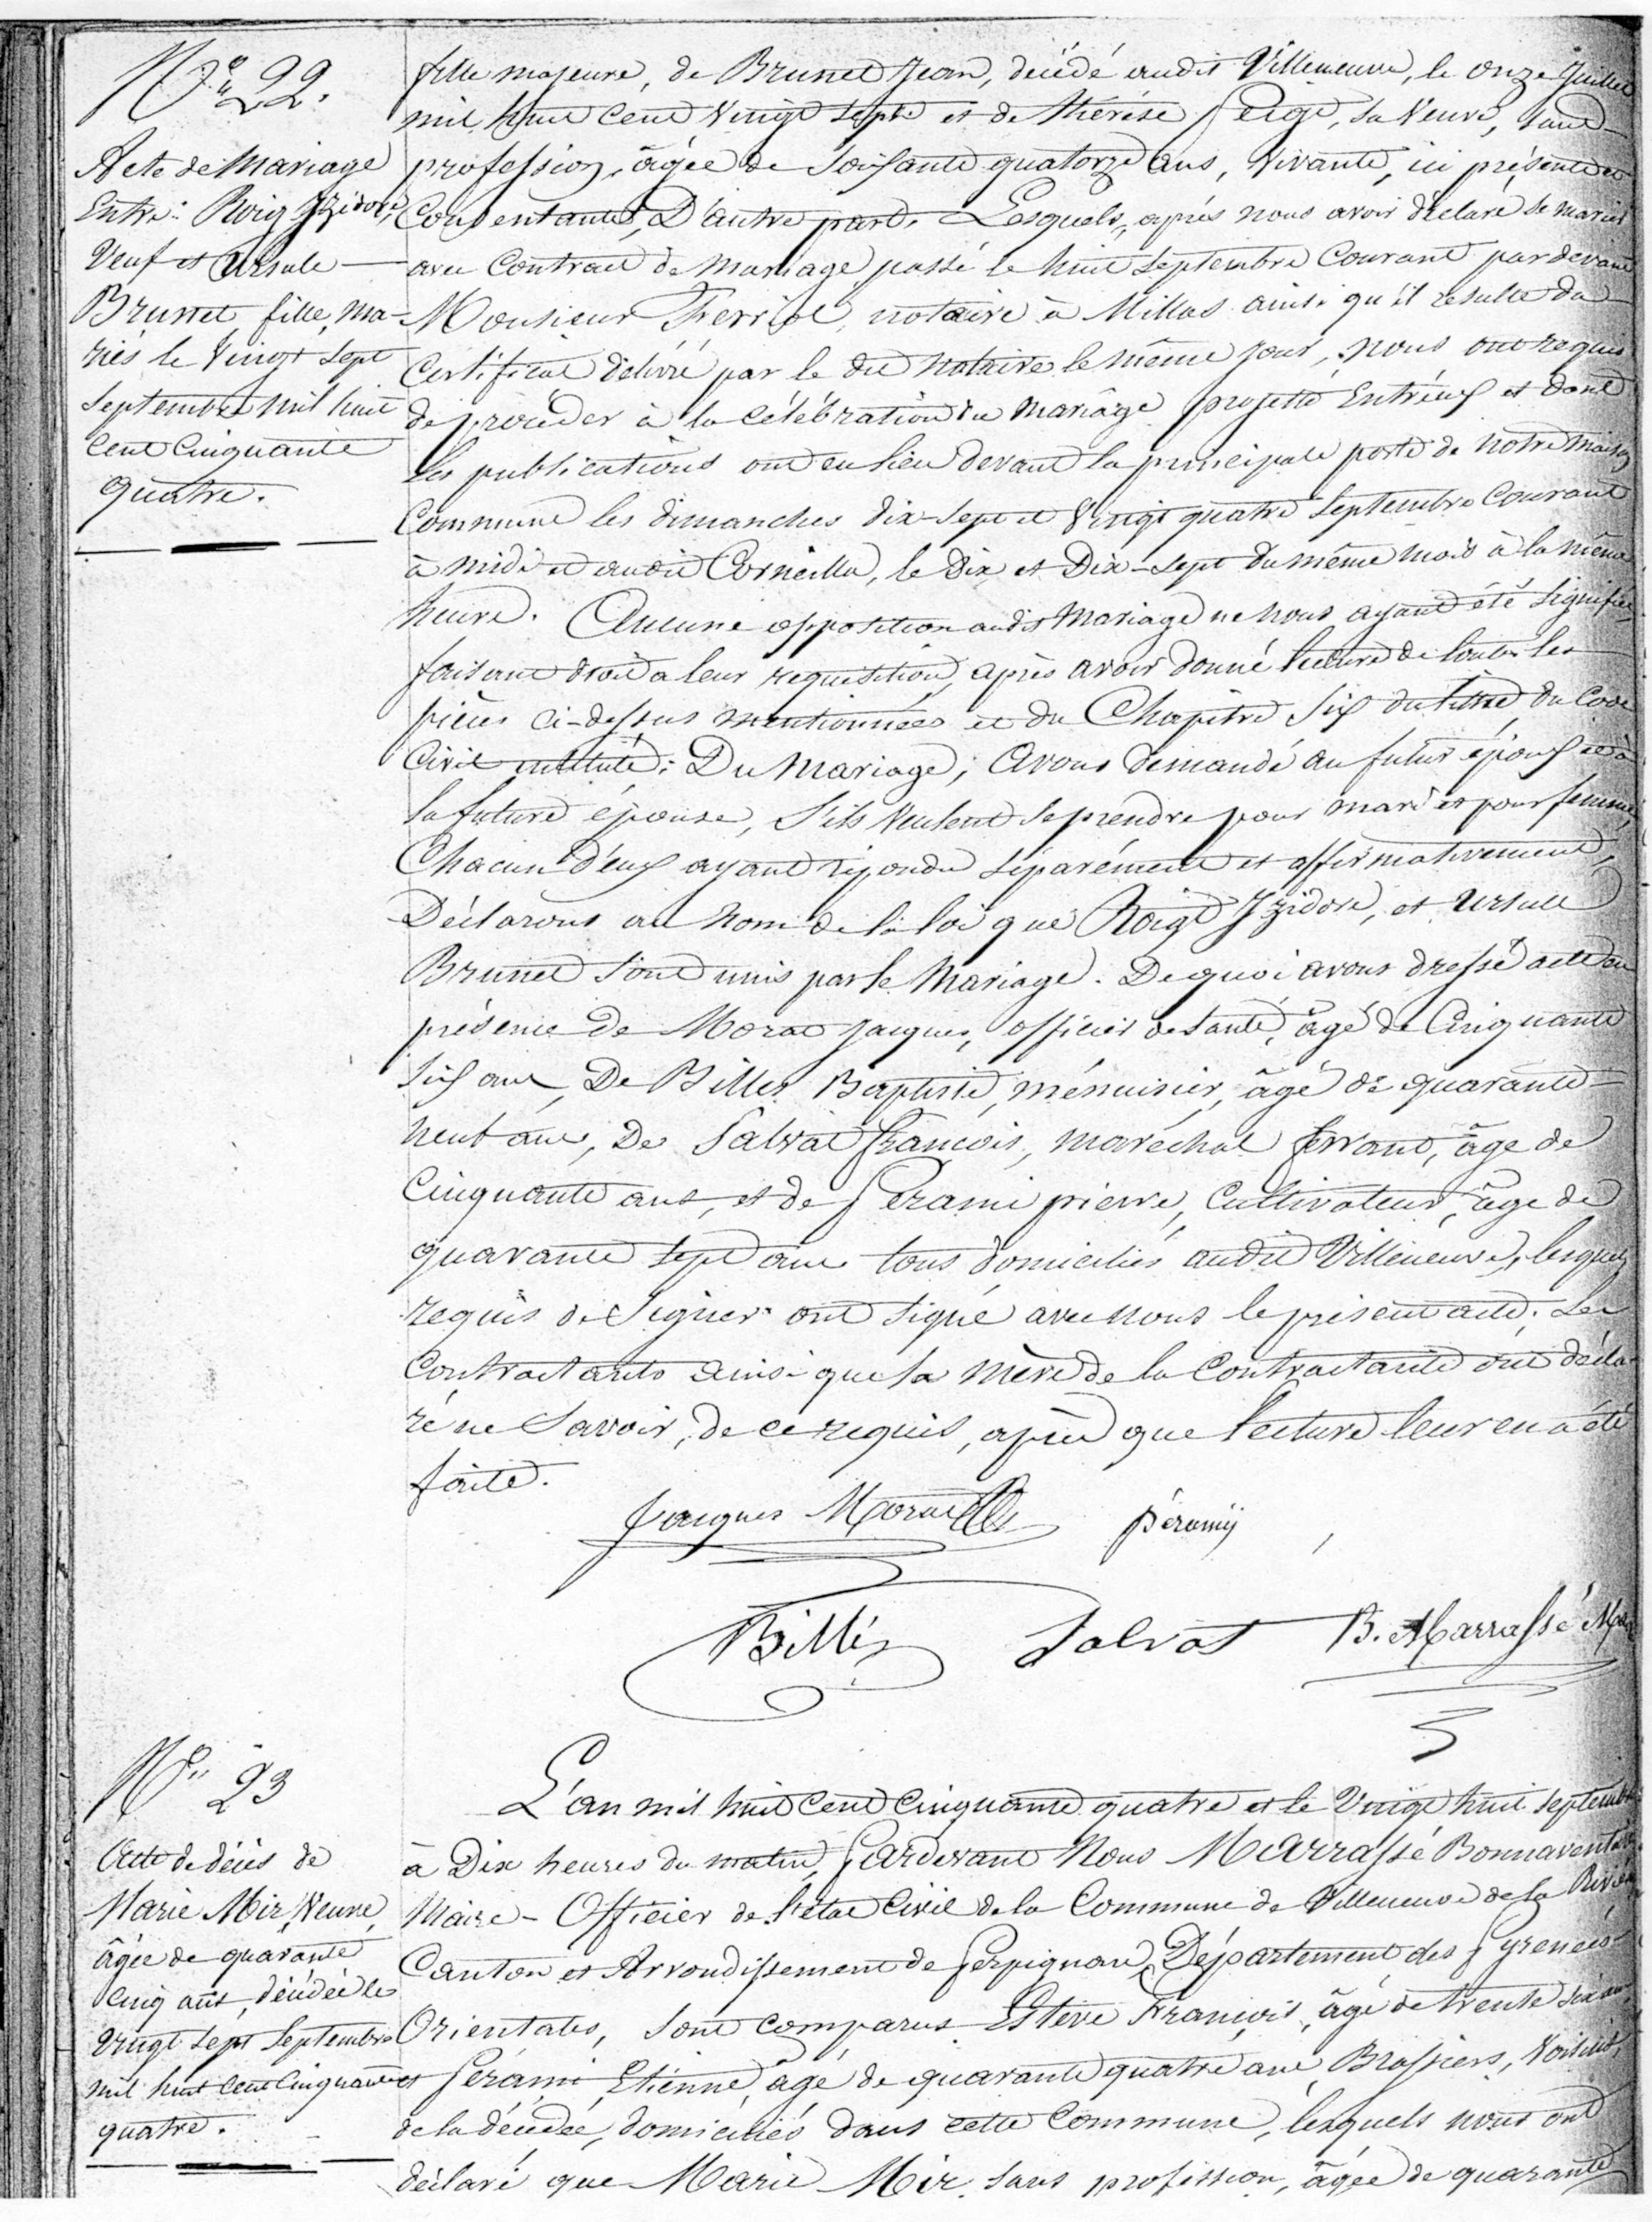 N.º 22.
Acte de Mariage
Entre: Roig Izidore,
Veuf et Ursule
Brunet, fille, ma-
riés le Vingt sept
septembre mil huit
cent Cinquante
quatre.
fille majeure, de Brunet Jean, décédé audit Villeneuve, le onze Juillet
mil huit cent Vingt sept et de Thérèse Peige, sa Veuve, sans
profession, âgée de Soixante quatorze ans, Vivante, ici présente et
Consentante, D'autre part. Lesquels, après nous avoir déclaré se marier
avec Contrat de mariage passé le huit Septembre Courant pardevant
Monsieur Ferriol, notaire à Millas ainsi qu'il résulte du
Certificat délivré par le dit Notaire le même jour, nous ont requis
de procéder à la célébration du mariage projetté Entr'eux et dont
les publications ont eu lieu devant la principale porte de notre maison
Commune les dimanches dix-sept et Vingt quatre Septembre Courant
à midi et audit Corneilla, le Dix et Dix-sept du même mois à la même
heure. Aucune opposition audit Mariage ne nous ayant été signifiée,
faisant droit a leur requisition, après avoir donné lecture de toutes les
pièces ci-dessus mentionnées et du Chapitre Six du titre du Code
Civil intitulé: Du Mariage; Avons demandé au futur époux et à
la future épouse, S'ils Veulent se prendre pour mari et pour femme,
Chacun d'eux ayant répondu séparément et affirmativement,
Déclarons au nom de la loi que Roig Izidore, et Ursule
Brunet sont unis par le Mariage. De quoi avons dressé acte en
présence de Morat Jacques, officier de santé, âgé de Cinquante
Six ans, De Billes Baptiste, ménuisier, âgé de quarante-
neuf ans, De Salvat François, maréchal ferrant, âgé de
Cinquante ans, et de Perami pierre, Cultivateur, âgé de
quarante sept ans tous domiciliés audit Villeneuve, lesquels
requis de Signer ont signé avec nous le présent acte. Les
Contractants ainsi que la mère de la Contractante ont décla-
ré ne Savoir, de ce requis, après que lecture leur en a été
faite.
Jacques Morat péramÿ
Billés Salvat B. Marrassé
N.º 23
Acte de décès de
Marie Mir, Veuve,
âgée de quarante
Cinq ans, décédée le
Vingt sept Septembre
mil huit cent Cinquante
quatre.
L'an mil huit cent cinquante quatre et le Vingt huit septembre
à Dix heures du matin, Pardevant Nous Marrassé Bonnaventure
Maire - Officier de l'état Civil de la Commune de Villeneuve de la Rivière
Canton et Arrondissement de Perpignan, Département des Pyrenées
Orientales, sont comparus Estève François, âgé de trente six ans,
et Pérami Etienne, âgé de quarante quatre ans, Brassiers, Voisins,
de la décédée, domiciliés dans cette Commune, lesquels nous ont
déclaré que Marie Mir, sans profession, âgée de quarante